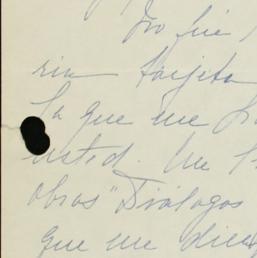 No fue
ria tarjeta
la que me
usted. Me
obras "Diálogos
que me dice